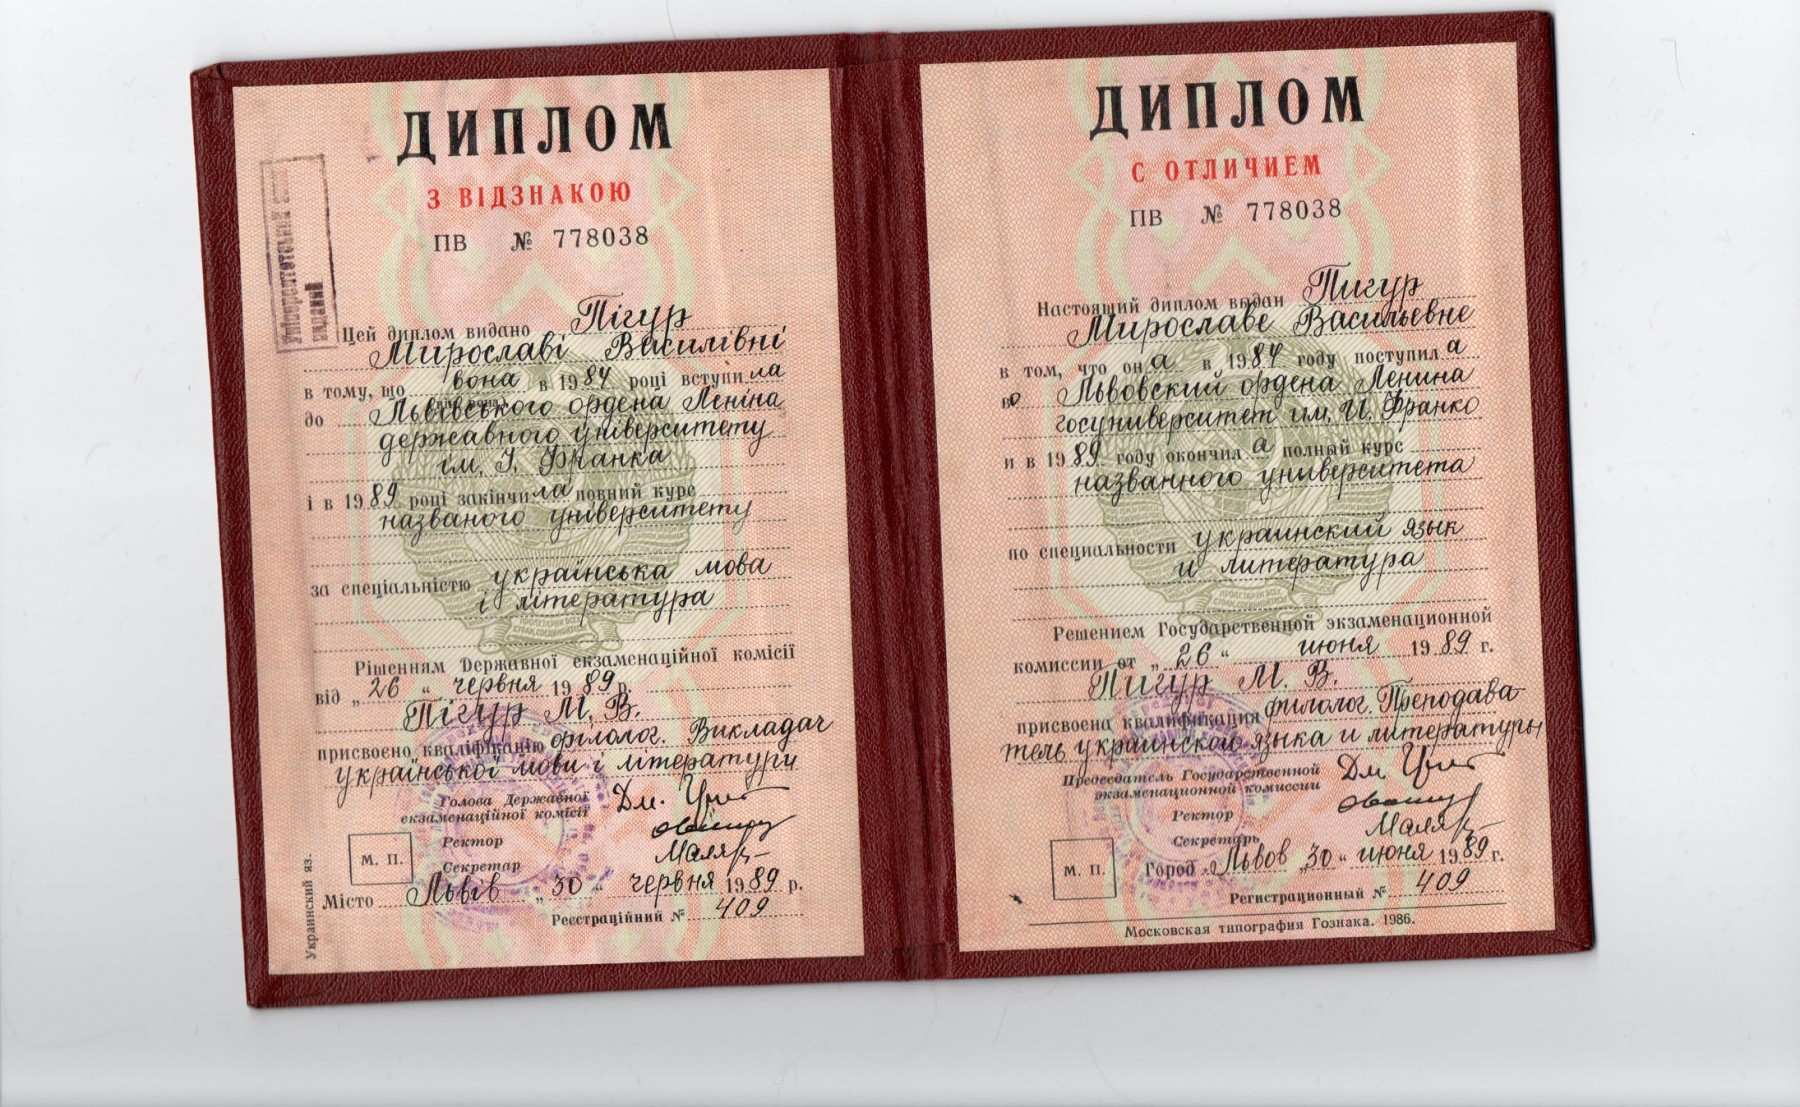 ДИПЛОМ
З ВІДЗНАКОЮ
ПВ № 778038
Університетський
виданий
Цей диплом видано Пігур
Мирославі Василівні
в тому, що вона в 1984 році вступила
до Львівського ордена Леніна
державного університету
ім. І. Франка
і в 1989 році закінчила повний курс
названого університету
за спеціальністю українська мова
і література
ПРОЛЕТАРИИ ВСЕХ
СТРАН, СОЕДИНЯЙТЕСЬ!
Рішенням Державної екзаменаційної комісії
від „26“ червня 1989 р.
Пігур М. В.
присвоєно кваліфікацію філолог. Викладач
української мови і літератури
Голова Державної
екзаменаційної комісії
Ректор
Секретар
М. П.
Місто Львів „30“ червня 1989 р.
Реєстраційний № 409
Украинский яз.
ДИПЛОМ
С ОТЛИЧИЕМ
ПВ № 778038
Настоящий диплом выдан Пигур
Мирославе Васильевне
в том, что она в 1984 году поступила
во Львовский ордена Ленина
госуниверситет им. И. Франко
и в 1989 году окончила полный курс
названного университета
по специальности украинский язык
и литература
ПРОЛЕТАРИИ ВСЕХ
СТРАН, СОЕДИНЯЙТЕСЬ!
Решением Государственной экзаменационной
комиссии от „26“ июня 1989 г.
Пигур М. В.
присвоена квалификация филолог. Преподава-
тель украинского языка и литературы
Председатель Государственной
экзаменационной комиссии
Ректор
Секретарь
М. П.
Город Львов „30“ июня 1989 г.
Регистрационный № 409
Московская типография Гознака. 1986.